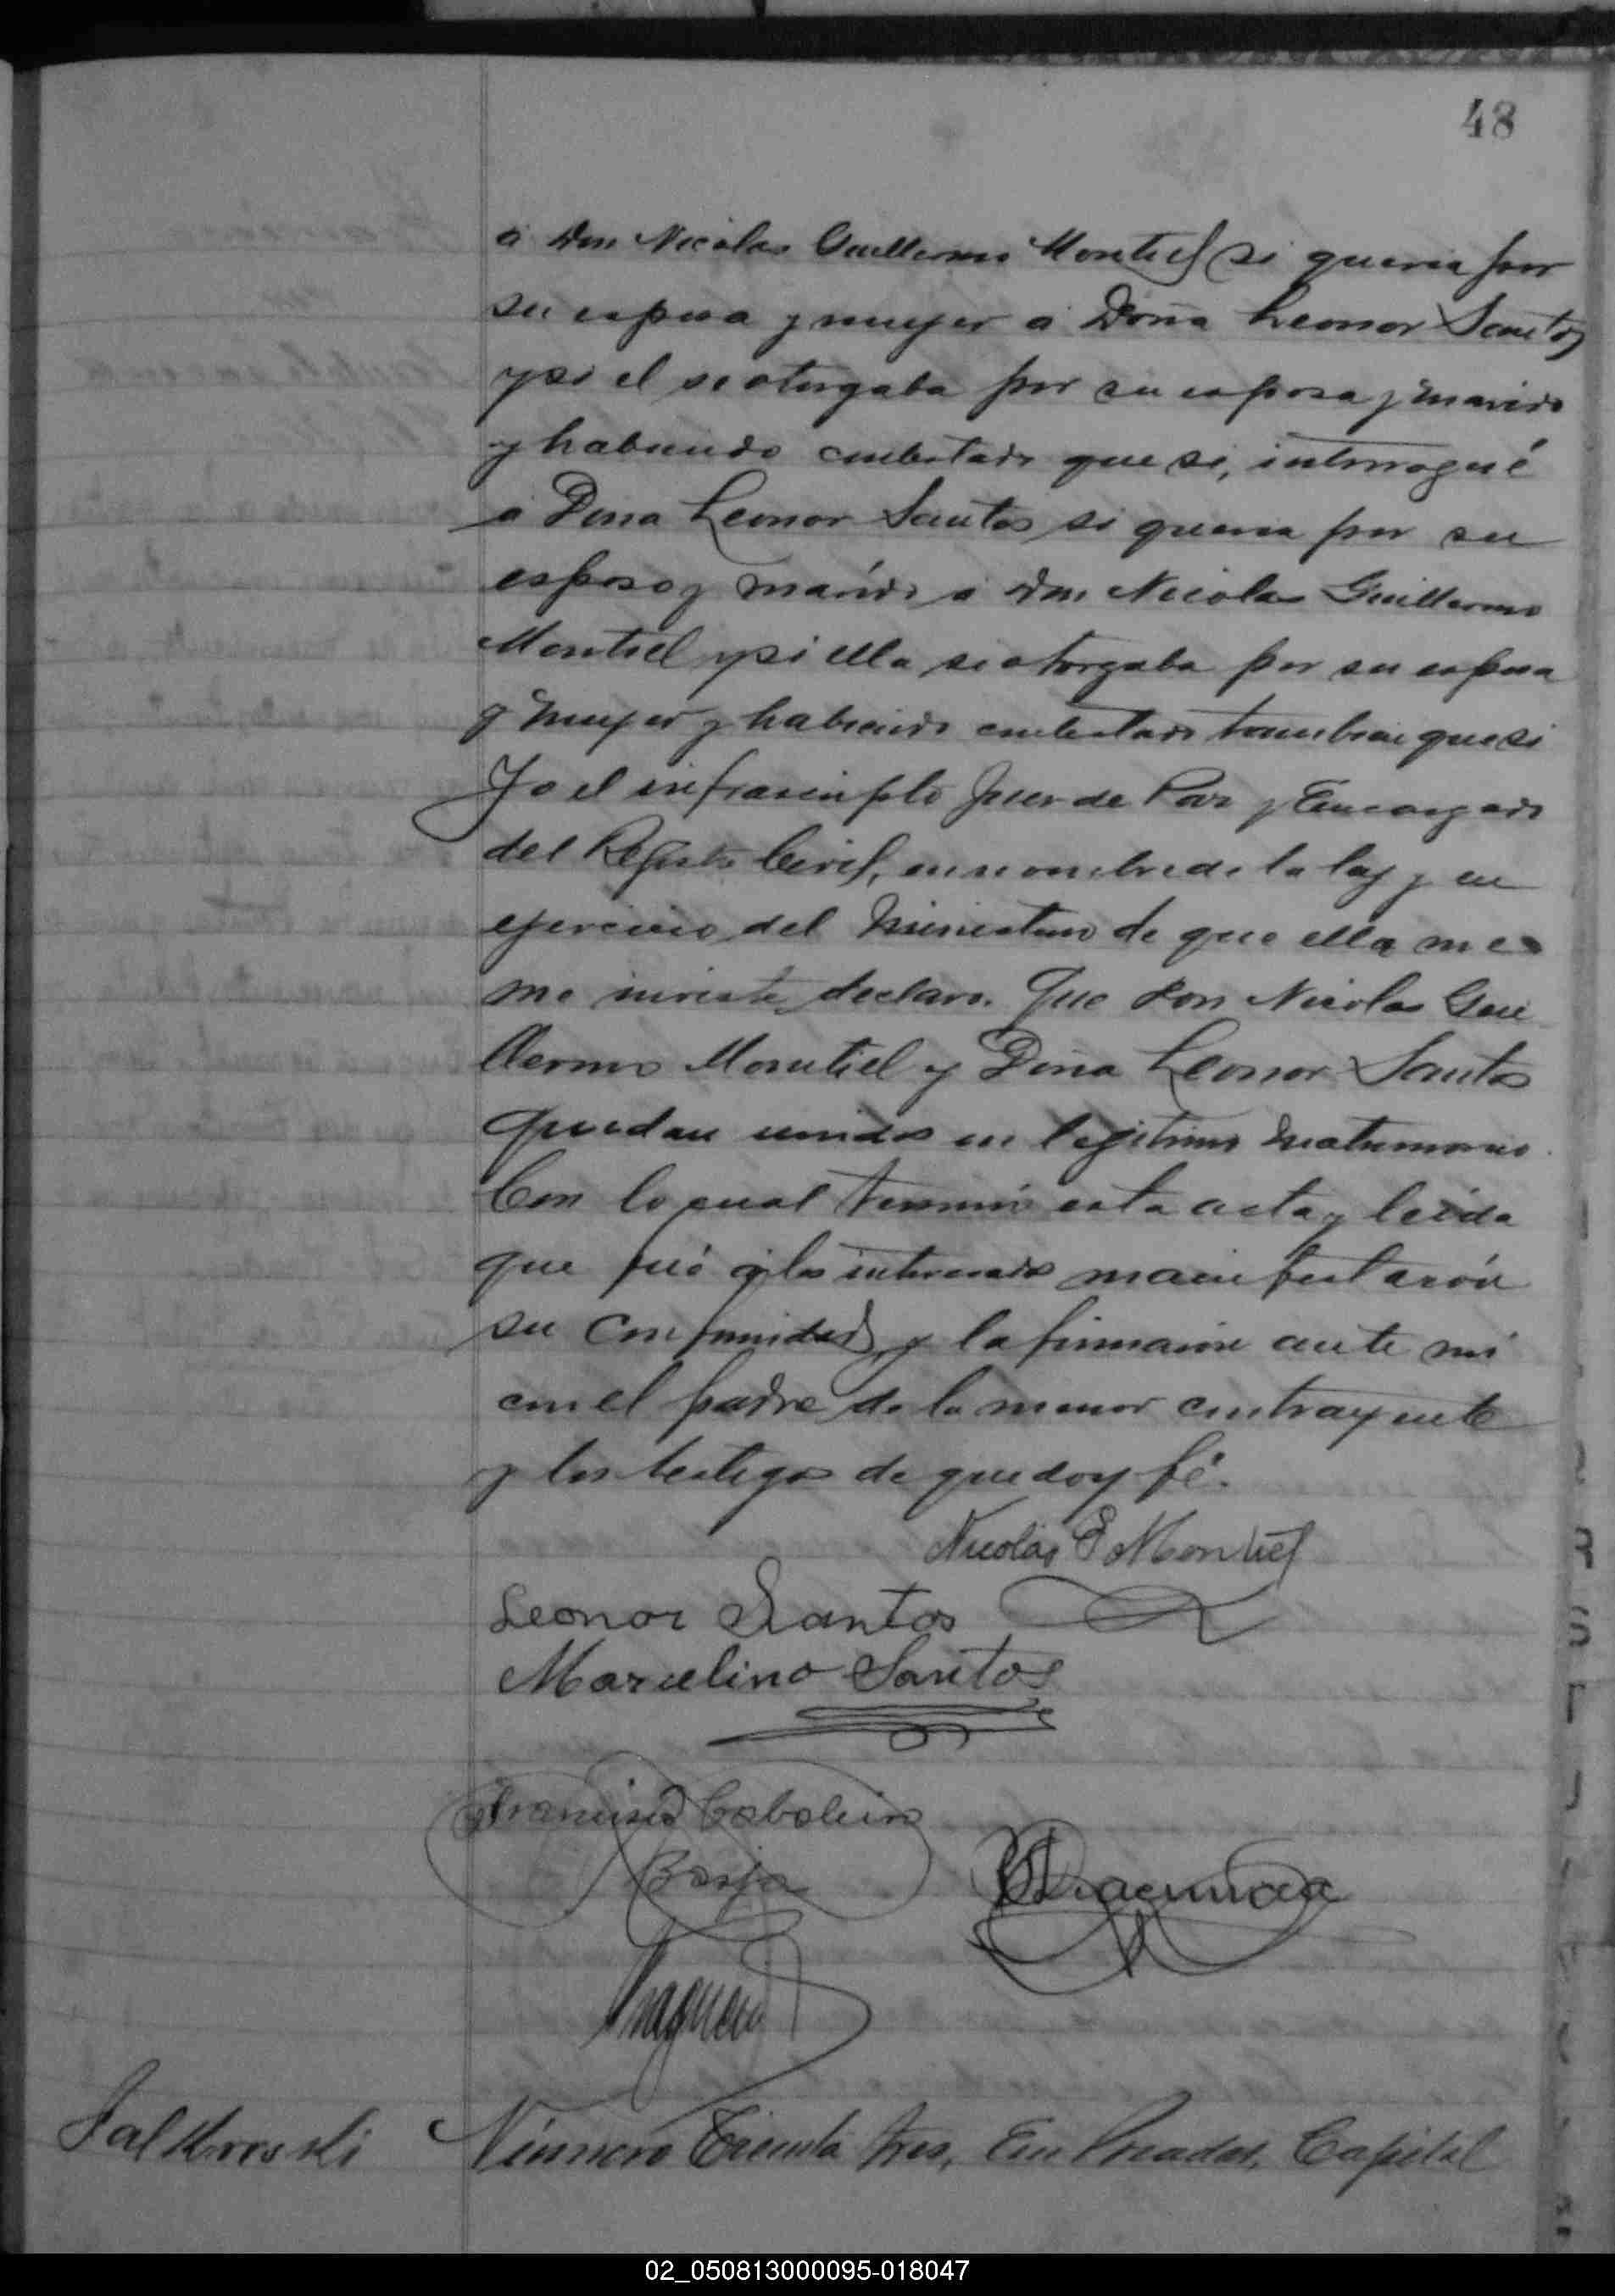 48
á Don Nicolas Guillermo Montiel si queria por
su esposa y mujer á Doña Leonor Santos
y si el se otorgaba por su esposo y marido
y habiendo contestado que si, interrogué
a Dona Leonor Santos si queria por su
esposo y marido a Don Nicolas Guillermo
Montiel y si ella se otorgaba por su esposa
y mujer y habiendo contestado tambien que si
Yo el infrascripto Juez de Paz y Encargado
del Registro Civil, en nombre de la ley y en
ejercicio del ministerio de que ella me
me inviste declaro. Que Don Nicolas Gui
llermo Montiel y Dona Leonor Santos
quedan unidos en legitimo matrimonio.
Con lo cual terminó esta acta y leida
que fué a los interesados manifestarón
su conformidad y la firmaron ante mi
con el padre de la menor contrayente
y los testigos de que doy fé.
Nicolás G Montiel
Leonor Santos
Marcelino Santos
Francisco Cabaleiro
Borja
Número Treinta tres, En Posadas, Capital
02_050813000095-018047